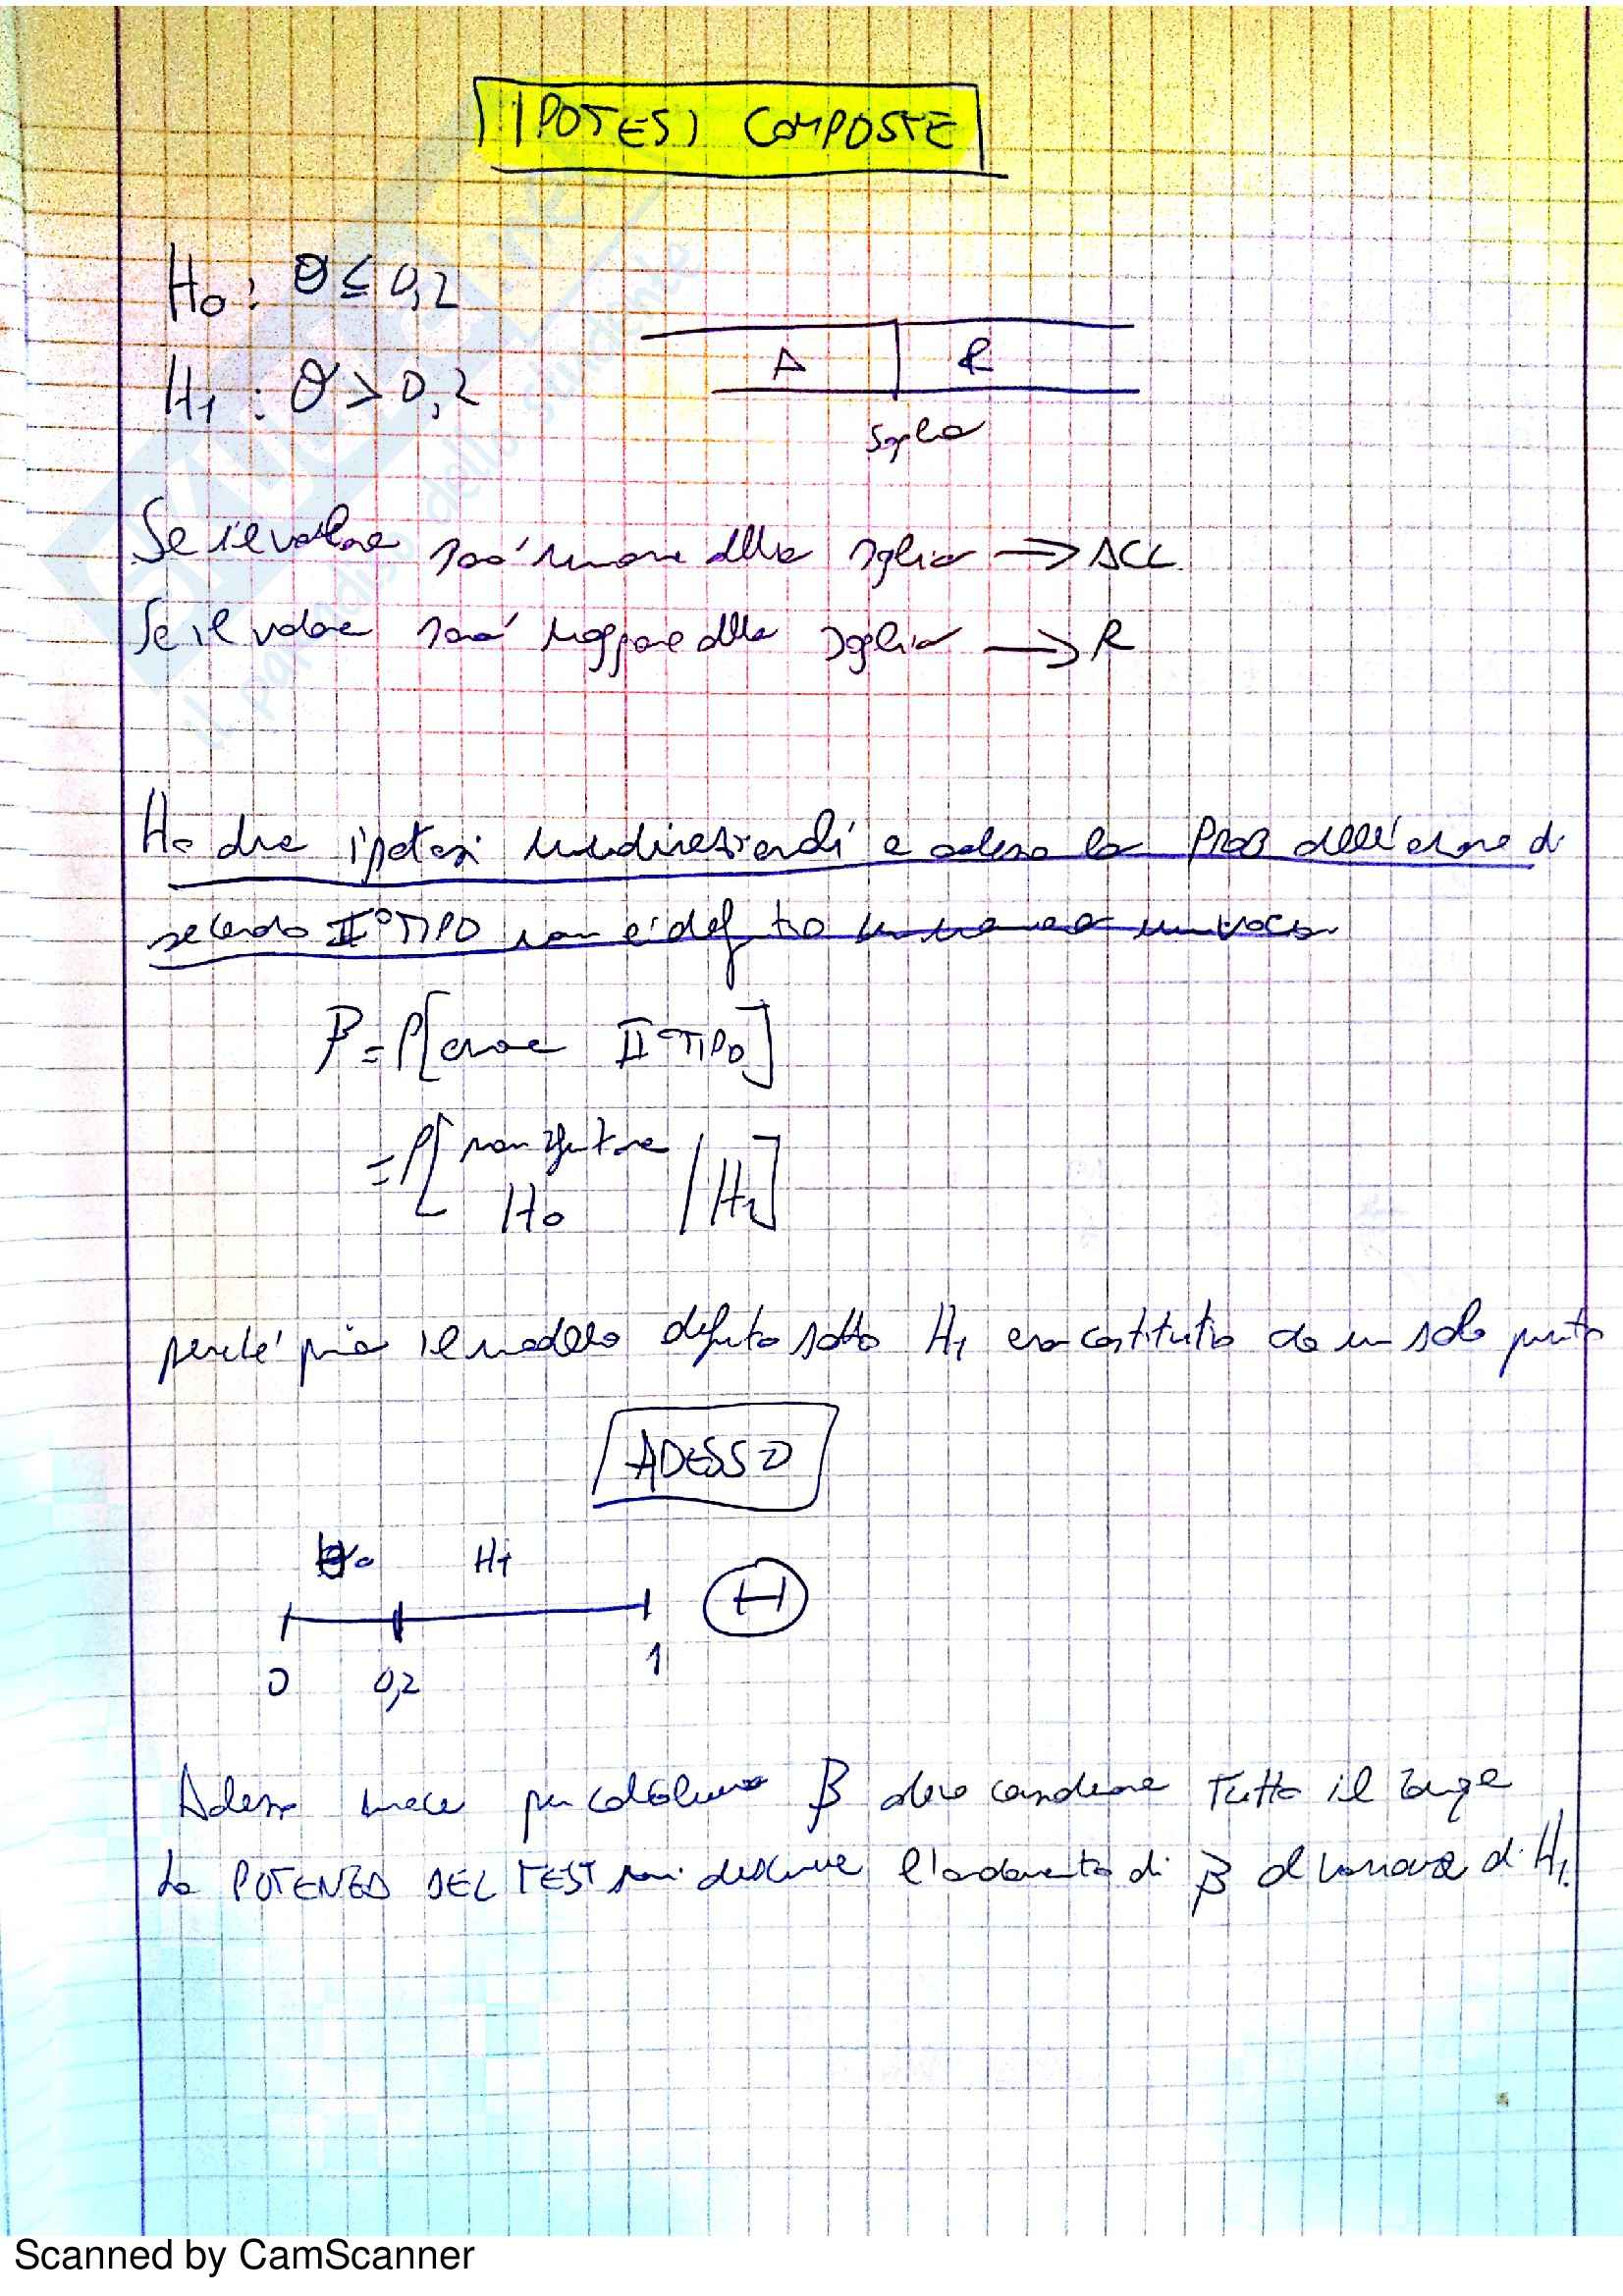 IPOTESI COMPOSTE
H0: θ ≤ 0,2
H1: θ > 0,2
A R
Soglia
Se il valore sarà minore della soglia → ACC.
Se il valore sarà maggiore della soglia → R
Ho due ipotesi unidirezionali e adesso la PROB dell'errore di
secondo II° TIPO non è definito in maniera univoca
β = P[errore II° TIPO]
= P[non rifiutare H0 / H1]
perché prima il modello definito sotto H1 era costituito da un solo punto
ADESSO
H0 H1
Θ
0 0,2 1
Adesso invece per calcolare β devo considerare Tutto il range
La POTENZA DEL TEST mi descrive l'andamento di β al variare di H1.
SKUOLA.NET
il paradiso dello studente
Scanned by CamScanner